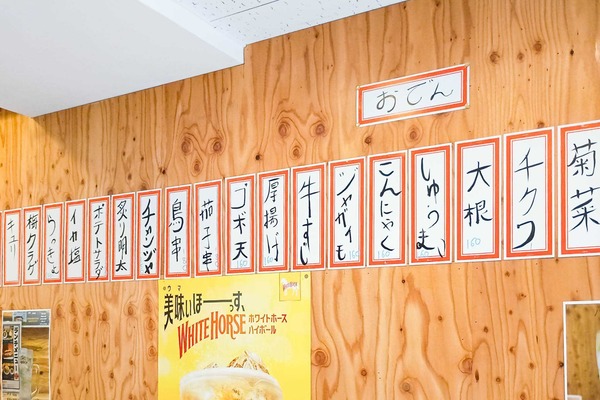 おでん
菊菜
チクワ
大根
160
しゅうまい
160
こんにゃく
160
ジャガイモ
160
牛すじ
厚揚げ
160
ゴボ天
160
茄子串
鳥串
チャンジャ
炙り明太
ポテトサラダ
イカ塩
らっきょ
梅クラゲ
キュリ
ウマ
美味いほーーっす、
WHITE HORSE
ホワイトホース
ハイボール